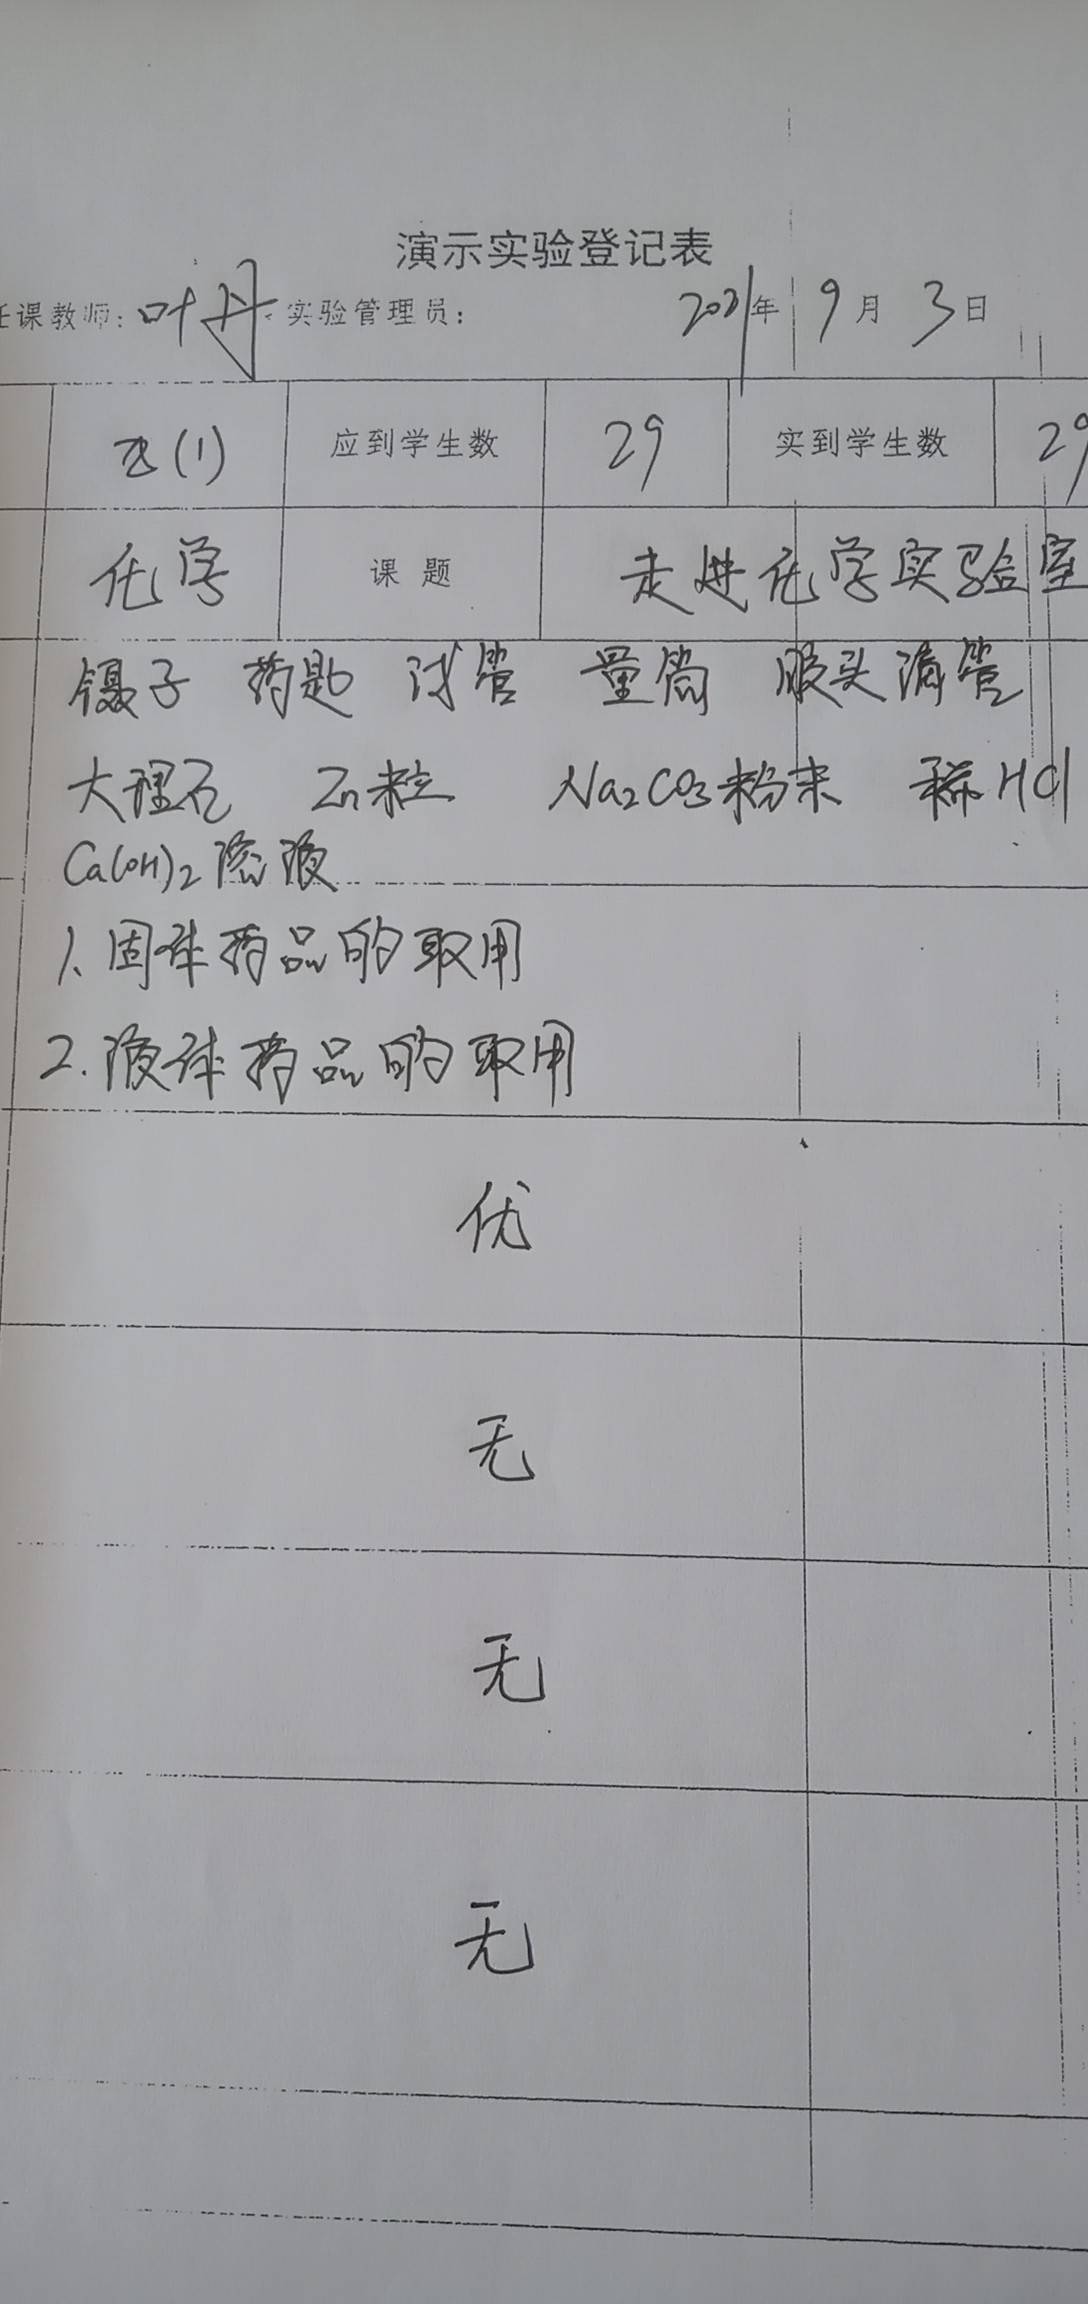 演示实验登记表
任课教师：叶丹 实验管理员： 2021年 9月 3日
(1) 应到学生数 29 实到学生数 29
化学 课题 走进化学实验室
镊子 药匙 试管 量筒 胶头滴管
大理石 Zn粒 Na2CO3粉末 稀HCl
Ca(OH)2溶液
1.固体药品的取用
2.液体药品的取用
优
无
无
无